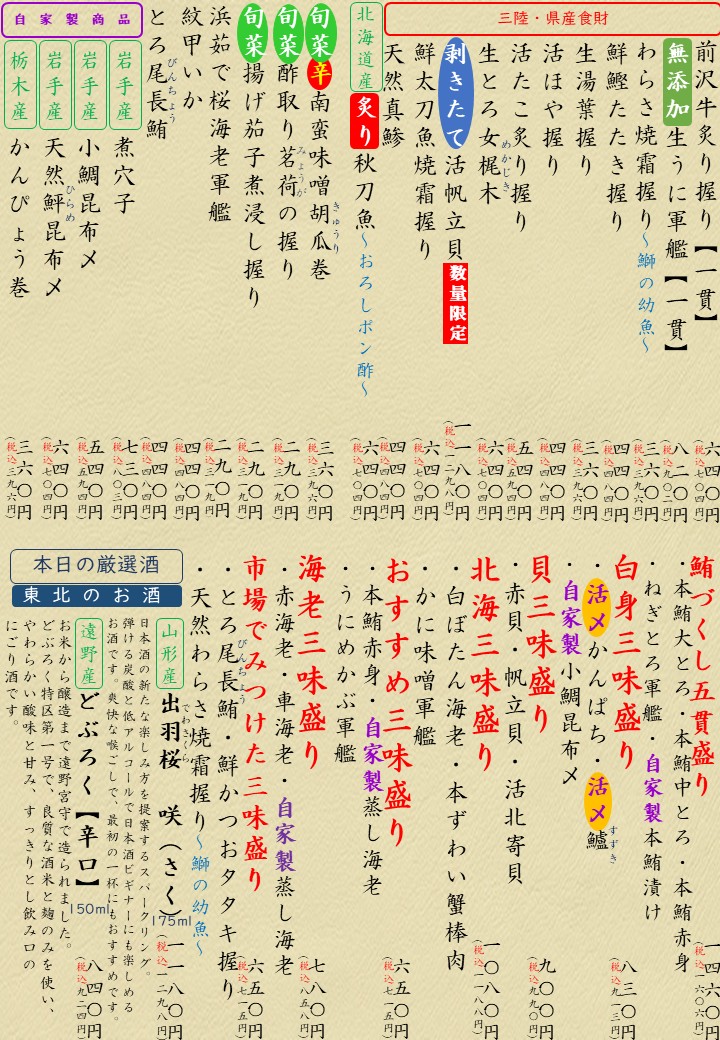 三陸・県産食財
前沢牛炙り握り【一貫】 六四〇円 (税込七〇四円)
無添加 生うに軍艦【一貫】 八二〇円 (税込九〇二円)
わらさ焼霜握り～鰤の幼魚～ 三六〇円 (税込三九六円)
鮮鰹たたき握り 四四〇円 (税込四八四円)
生湯葉握り 三六〇円 (税込三九六円)
活ほや握り 四四〇円 (税込四八四円)
活たこ炙り握り 五四〇円 (税込五九四円)
生とろ女梶木 めかじき 六四〇円 (税込七〇四円)
剥きたて 活帆立貝 数量限定 一一八〇円 (税込一二九八円)
鮮太刀魚焼霜握り 六四〇円 (税込七〇四円)
天然真鯵 四四〇円 (税込四八四円)
北海道産 炙り 秋刀魚～おろしポン酢～ 六四〇円 (税込七〇四円)
旬菜 辛 南蛮味噌胡瓜巻 きゅうり 三六〇円 (税込三九六円)
旬菜 酢取り茗荷の握り みょうが 二九〇円 (税込三一九円)
旬菜 揚げ茄子煮浸し握り 二九〇円 (税込三一九円)
浜茹で桜海老軍艦 二九〇円 (税込三一九円)
紋甲いか 四四〇円 (税込四八四円)
とろ尾長鮪 びんちょう 四四〇円 (税込四八四円)
自家製商品
岩手産 煮穴子 七三〇円 (税込八〇三円)
岩手産 小鯛昆布〆 五四〇円 (税込五九四円)
岩手産 天然鮃昆布〆 ひらめ 六四〇円 (税込七〇四円)
栃木産 かんぴょう巻 三六〇円 (税込三九六円)
鮪づくし五貫盛り 一四六〇円 (税込一六〇六円)
・本鮪大とろ・本鮪中とろ・本鮪赤身
・ねぎとろ軍艦・自家製本鮪漬け
白身三味盛り 八三〇円 (税込九一三円)
・活〆かんぱち・活〆鱸 すずき
・自家製小鯛昆布〆
貝三味盛り 九〇〇円 (税込九九〇円)
・赤貝・帆立貝・活北寄貝
北海三味盛り 一〇八〇円 (税込一一八八円)
・白ぼたん海老・本ずわい蟹棒肉
・かに味噌軍艦
おすすめ三味盛り 六五〇円 (税込七一五円)
・本鮪赤身・自家製蒸し海老
・うにめかぶ軍艦
海老三味盛り 七八〇円 (税込八五八円)
・赤海老・車海老・自家製蒸し海老
市場でみつけた三味盛り 六五〇円 (税込七一五円)
・とろ尾長鮪・鮮かつおタタキ握り びんちょう
・天然わらさ焼霜握り～鰤の幼魚～
本日の厳選酒
東北のお酒
山形産 出羽桜 咲（さく） でわざくら 175ml 一一八〇円 (税込一二九八円)
日本酒の新たな楽しみ方を提案するスパークリング。
弾ける炭酸と低アルコールで日本酒ビギナーにも楽しめる
お酒です。爽快な喉ごしで、最初の一杯にもおすすめです。
遠野産 どぶろく【辛口】 150ml 八四〇円 (税込九二四円)
お米から醸造まで遠野宮守で造られました。
どぶろく特区第一号で、良質な酒米と麹のみを使い、
やわらかい酸味と甘み、すっきりとし飲み口の
にごり酒です。